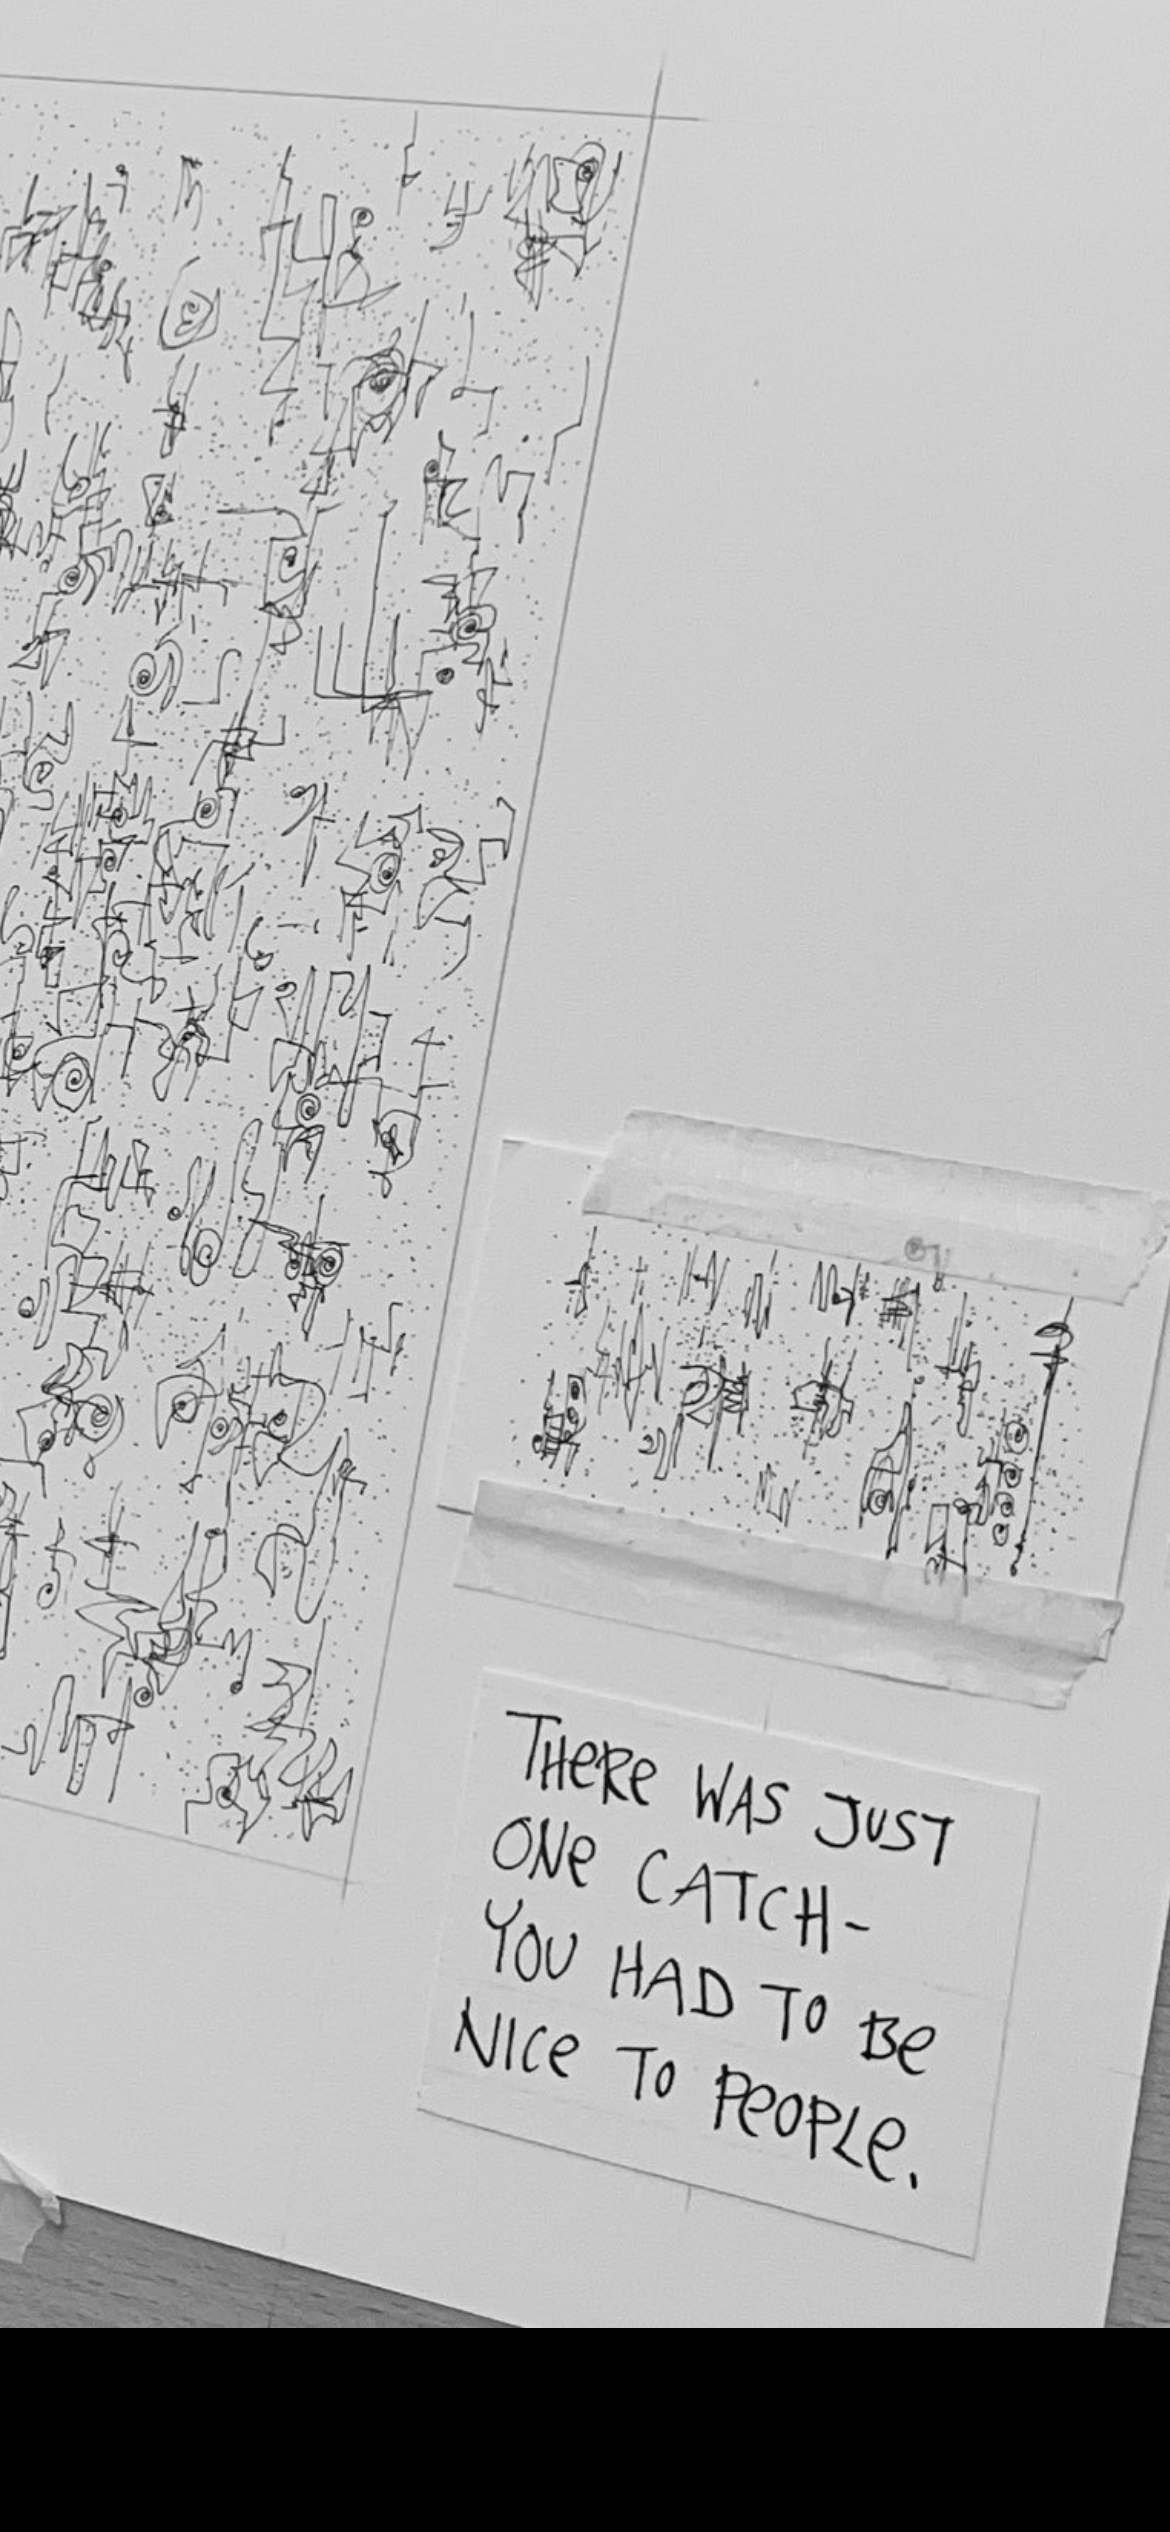 THERE WAS JUST
ONE CATCH-
YOU HAD TO BE
NICE TO PEOPLE.